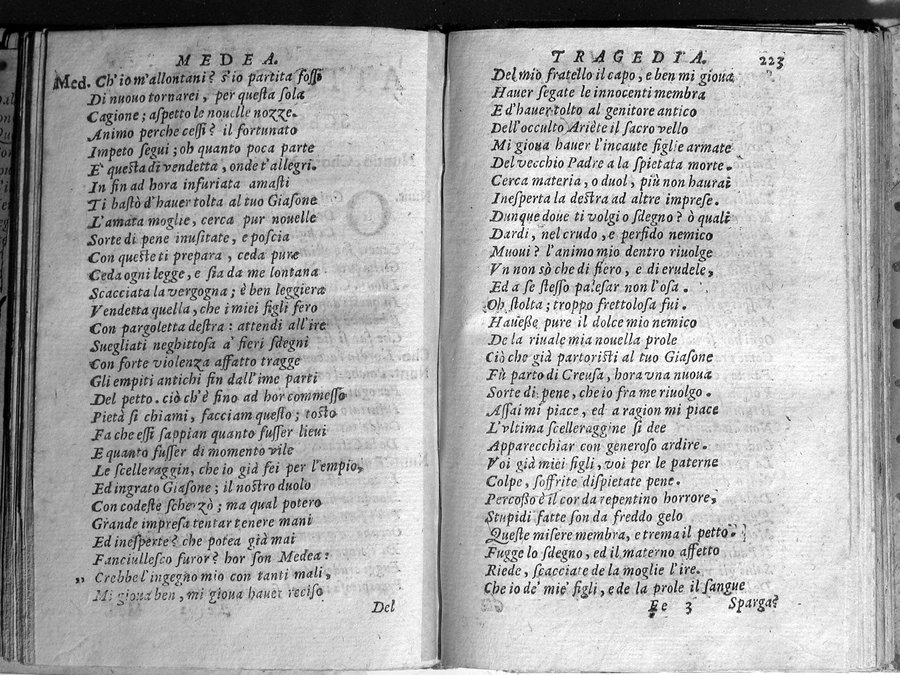 MEDEA.
Med. Ch'io m'allontani? s'io partita fossi
Di nuouo tornarei, per questa sola
Cagione; aspetto le nouelle nozze.
Animo perche cessi? il fortunato
Impeto segui; oh quanto poca parte
E' questa di vendetta, onde t'allegri.
In fin ad hora infuriata amasti
Ti bastò d'hauer tolto al tuo Giasone
L'amata moglie, cerca pur nouelle
Sorte di pene inusitate, e poscia
Con queste ti prepara, ceda pure
Ceda ogni legge, e sia da me lontana
Scacciata la vergogna; è ben leggiera
Vendetta quella, che i miei figli fero
Con pargoletta destra: attendi all'ire
Suegliati neghittosa a' fieri sdegni
Con forte violenza affatto tragge
Gli empiti antichi fin dall'ime parti
Del petto. ciò ch'è fino ad hor commesso
Pietà si chiami, facciam questo; tosto
Fa che essi sappian quanto fusser lieui
E quanto fusser di momento vile
Le scelleraggin, che io già fei per l'empio,
Ed ingrato Giasone; il nostro duolo
Con codeste scherzò; ma qual potero
Grande impresa tentar tenere mani
Ed inesperte? che potea già mai
Fanciullesco furor? hor son Medea:
,, Crebbe l'ingegno mio con tanti mali,
Mi gioua ben, mi gioua hauer reciso
Del
TRAGEDIA. 223
Del mio fratello il capo, e ben mi gioua
Hauer segate le innocenti membra
E d'hauer tolto al genitore antico
Dell'occulto Ariete il sacro vello
Mi gioua hauer l'incaute figlie armate
Del vecchio Padre a la spietata morte.
Cerca materia, o duol, più non haurai
Inesperta la destra ad altre imprese.
Dunque doue ti volgi o sdegno? ò quali
Dardi, nel crudo, e perfido nemico
Muoui? l'animo mio dentro riuolge
Vn non sò che di fiero, e di erudele,
Ed a se stesso palesar non l'osa.
Oh stolta; troppo frettolosa fui.
Hauesse pure il dolce mio nemico
De la riuale mia nouella prole
Ciò che già partoristi al tuo Giasone
Fù parto di Creusa, hora vna nuoua
Sorte di pene, che io fra me riuolgo.
Assai mi piace, ed a ragion mi piace
L'vltima scelleraggine si dee
Apparecchiar con generoso ardire.
Voi già miei figli, voi per le paterne
Colpe, soffrite dispietate pene.
Percosso è il cor da repentino horrore,
Stupidi fatte son da freddo gelo
Queste misere membra, e trema il petto.
Fugge lo sdegno, ed il materno affetto
Riede, scacciate de la moglie l'ire.
Che io de' mie' figli, e de la prole il sangue
Ee 3 Sparga?